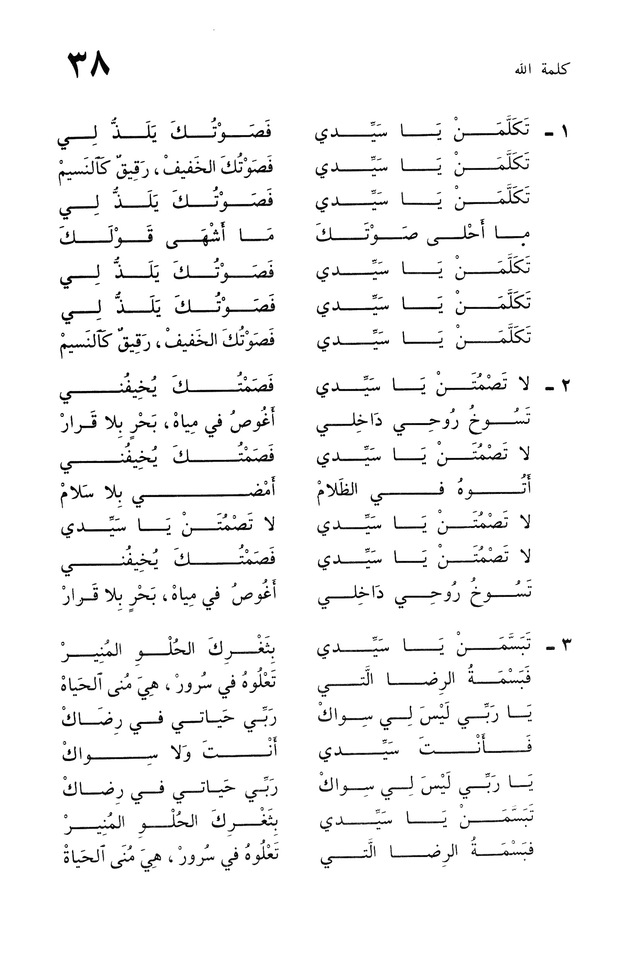 كلمة الله ٣٨
١ ـ تَكَلَّمَنْ يَا سَيِّدي فَصَوْتُكَ يَلَذُّ لِي
تَكَلَّمَنْ يَا سَيِّدي فَصَوْتُكَ الخَفيف، رَقِيقٌ كَالنَسيمْ
تَكَلَّمَنْ يَا سَيِّدي فَصَوْتُكَ يَلَذُّ لِي
مـا أَحْلى صَوْتَكَ مَا أَشْهَى قَوْلَكَ
تَكَلَّمَنْ يَا سَيِّدي فَصَوْتُكَ يَلَذُّ لِي
تَكَلَّمَنْ يَا سَيِّدي فَصَوْتُكَ يَلَذُّ لِي
تَكَلَّمَنْ يَا سَيِّدي فَصَوْتُكَ الخَفيفْ، رَقِيقٌ كَالنَسيمْ
٢ ـ لا تَصْمُتَنْ يَا سَيِّدي فَصَمْتُكَ يُخيفُني
تَسُوخُ رُوحِي دَاخِلِي أَغُوصُ في مِياهْ، بَحْرٍ بِلا قَرارْ
لا تَصْمُتَنْ يَا سَيِّدي فَصَمْتُكَ يُخيفُني
أَتُوهُ في الظَلامْ أَمْضي بِلا سَلامْ
لا تَصْمُتَنْ يَا سَيِّدي لا تَصْمُتَنْ يَا سَيِّدي
لا تَصْمُتَنْ يَا سَيِّدي فَصَمْتُكَ يُخيفُني
تَسُوخُ رُوحِي دَاخِلِي أَغُوصُ في مِياهْ، بَحْرٍ بِلا قَرارْ
٣ ـ تَبَسَّمَنْ يَا سَيِّدي بِثَغْرِكَ الحُلْوِ المُنِيرْ
فَبَسْمَةُ الرِضا الَّتي تَعْلُوهُ في سُرورْ، هِيَ مُنى الحَياهْ
يَا رَبِّي لَيْسَ لِي سِواكْ رَبِّي حَياتي في رِضَاكْ
فَأَنْتَ سَيِّدي أَنْتَ وَلا سِواكْ
يَا رَبِّي لَيْسَ لِي سِواكْ رَبِّي حَياتي في رِضاكْ
تَبَسَّمَنْ يَا سَيِّدي بِثَغْرِكَ الحُلْوِ المُنِيرْ
فَبَسْمَةُ الرِضا الَّتي تَعْلُوهُ في سُرورْ، هِيَ مُنَى الحَياةْ